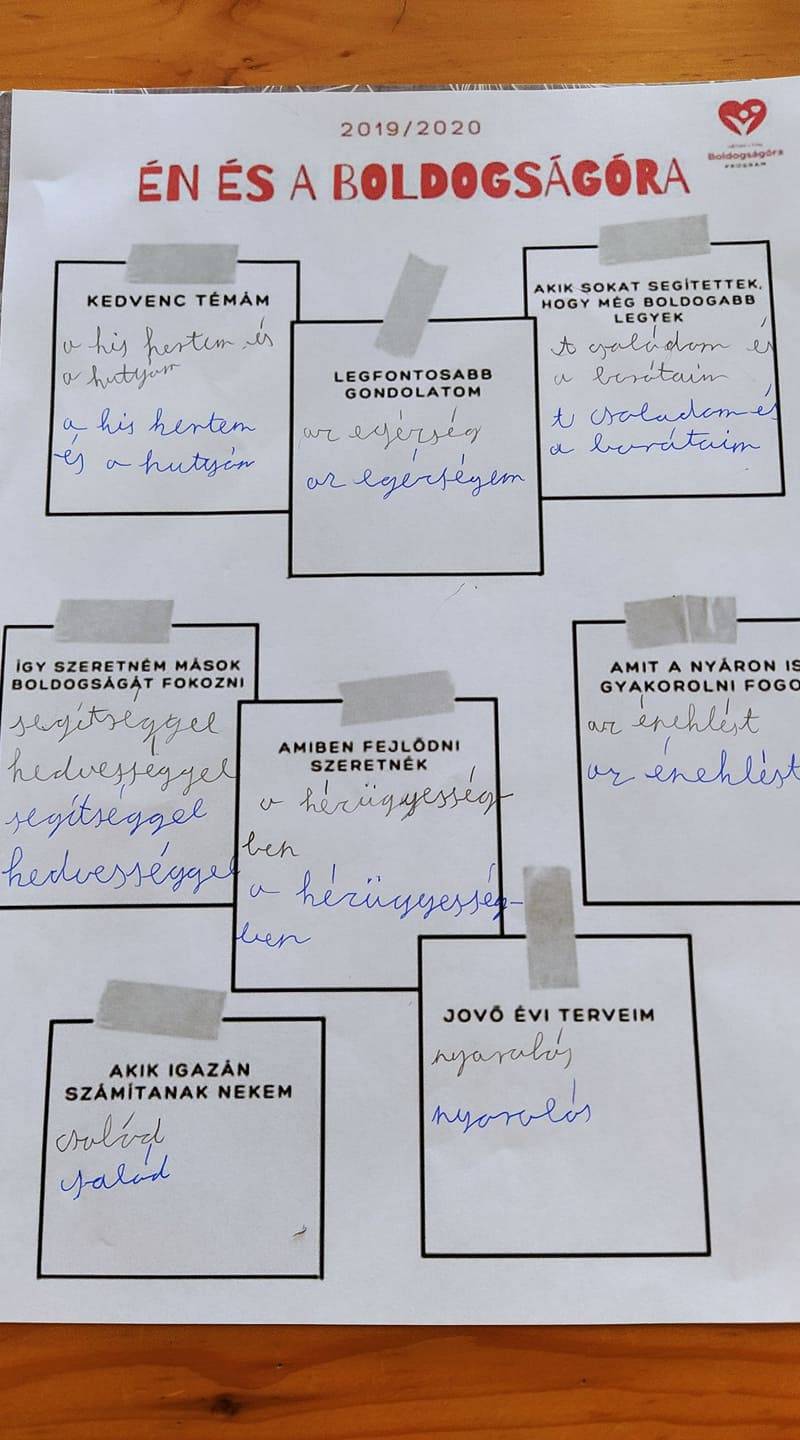 2019/2020
ÉN ÉS A BOLDOGSÁGÓRA
Boldogságóra
PROGRAM
KEDVENC TÉMÁM
a kis kertem és
a kutyám
a kis kertem
és a kutyám
LEGFONTOSABB
GONDOLATOM
az egészség
az egészségem
AKIK SOKAT SEGÍTETTEK,
HOGY MÉG BOLDOGABB
LEGYEK
A családom és
a barátaim
A családom és
a barátaim
ÍGY SZERETNÉM MÁSOK
BOLDOGSÁGÁT FOKOZNI
segítséggel
kedvességgel
segítséggel
kedvességgel
AMIBEN FEJLŐDNI
SZERETNÉK
a kézügyesség-
ben
a kézügyesség-
ben
AMIT A NYÁRON IS
GYAKOROLNI FOGO
az éneklést
az éneklést
AKIK IGAZÁN
SZÁMÍTANAK NEKEM
család
család
JOVŐ ÉVI TERVEIM
nyaralás
nyaralás